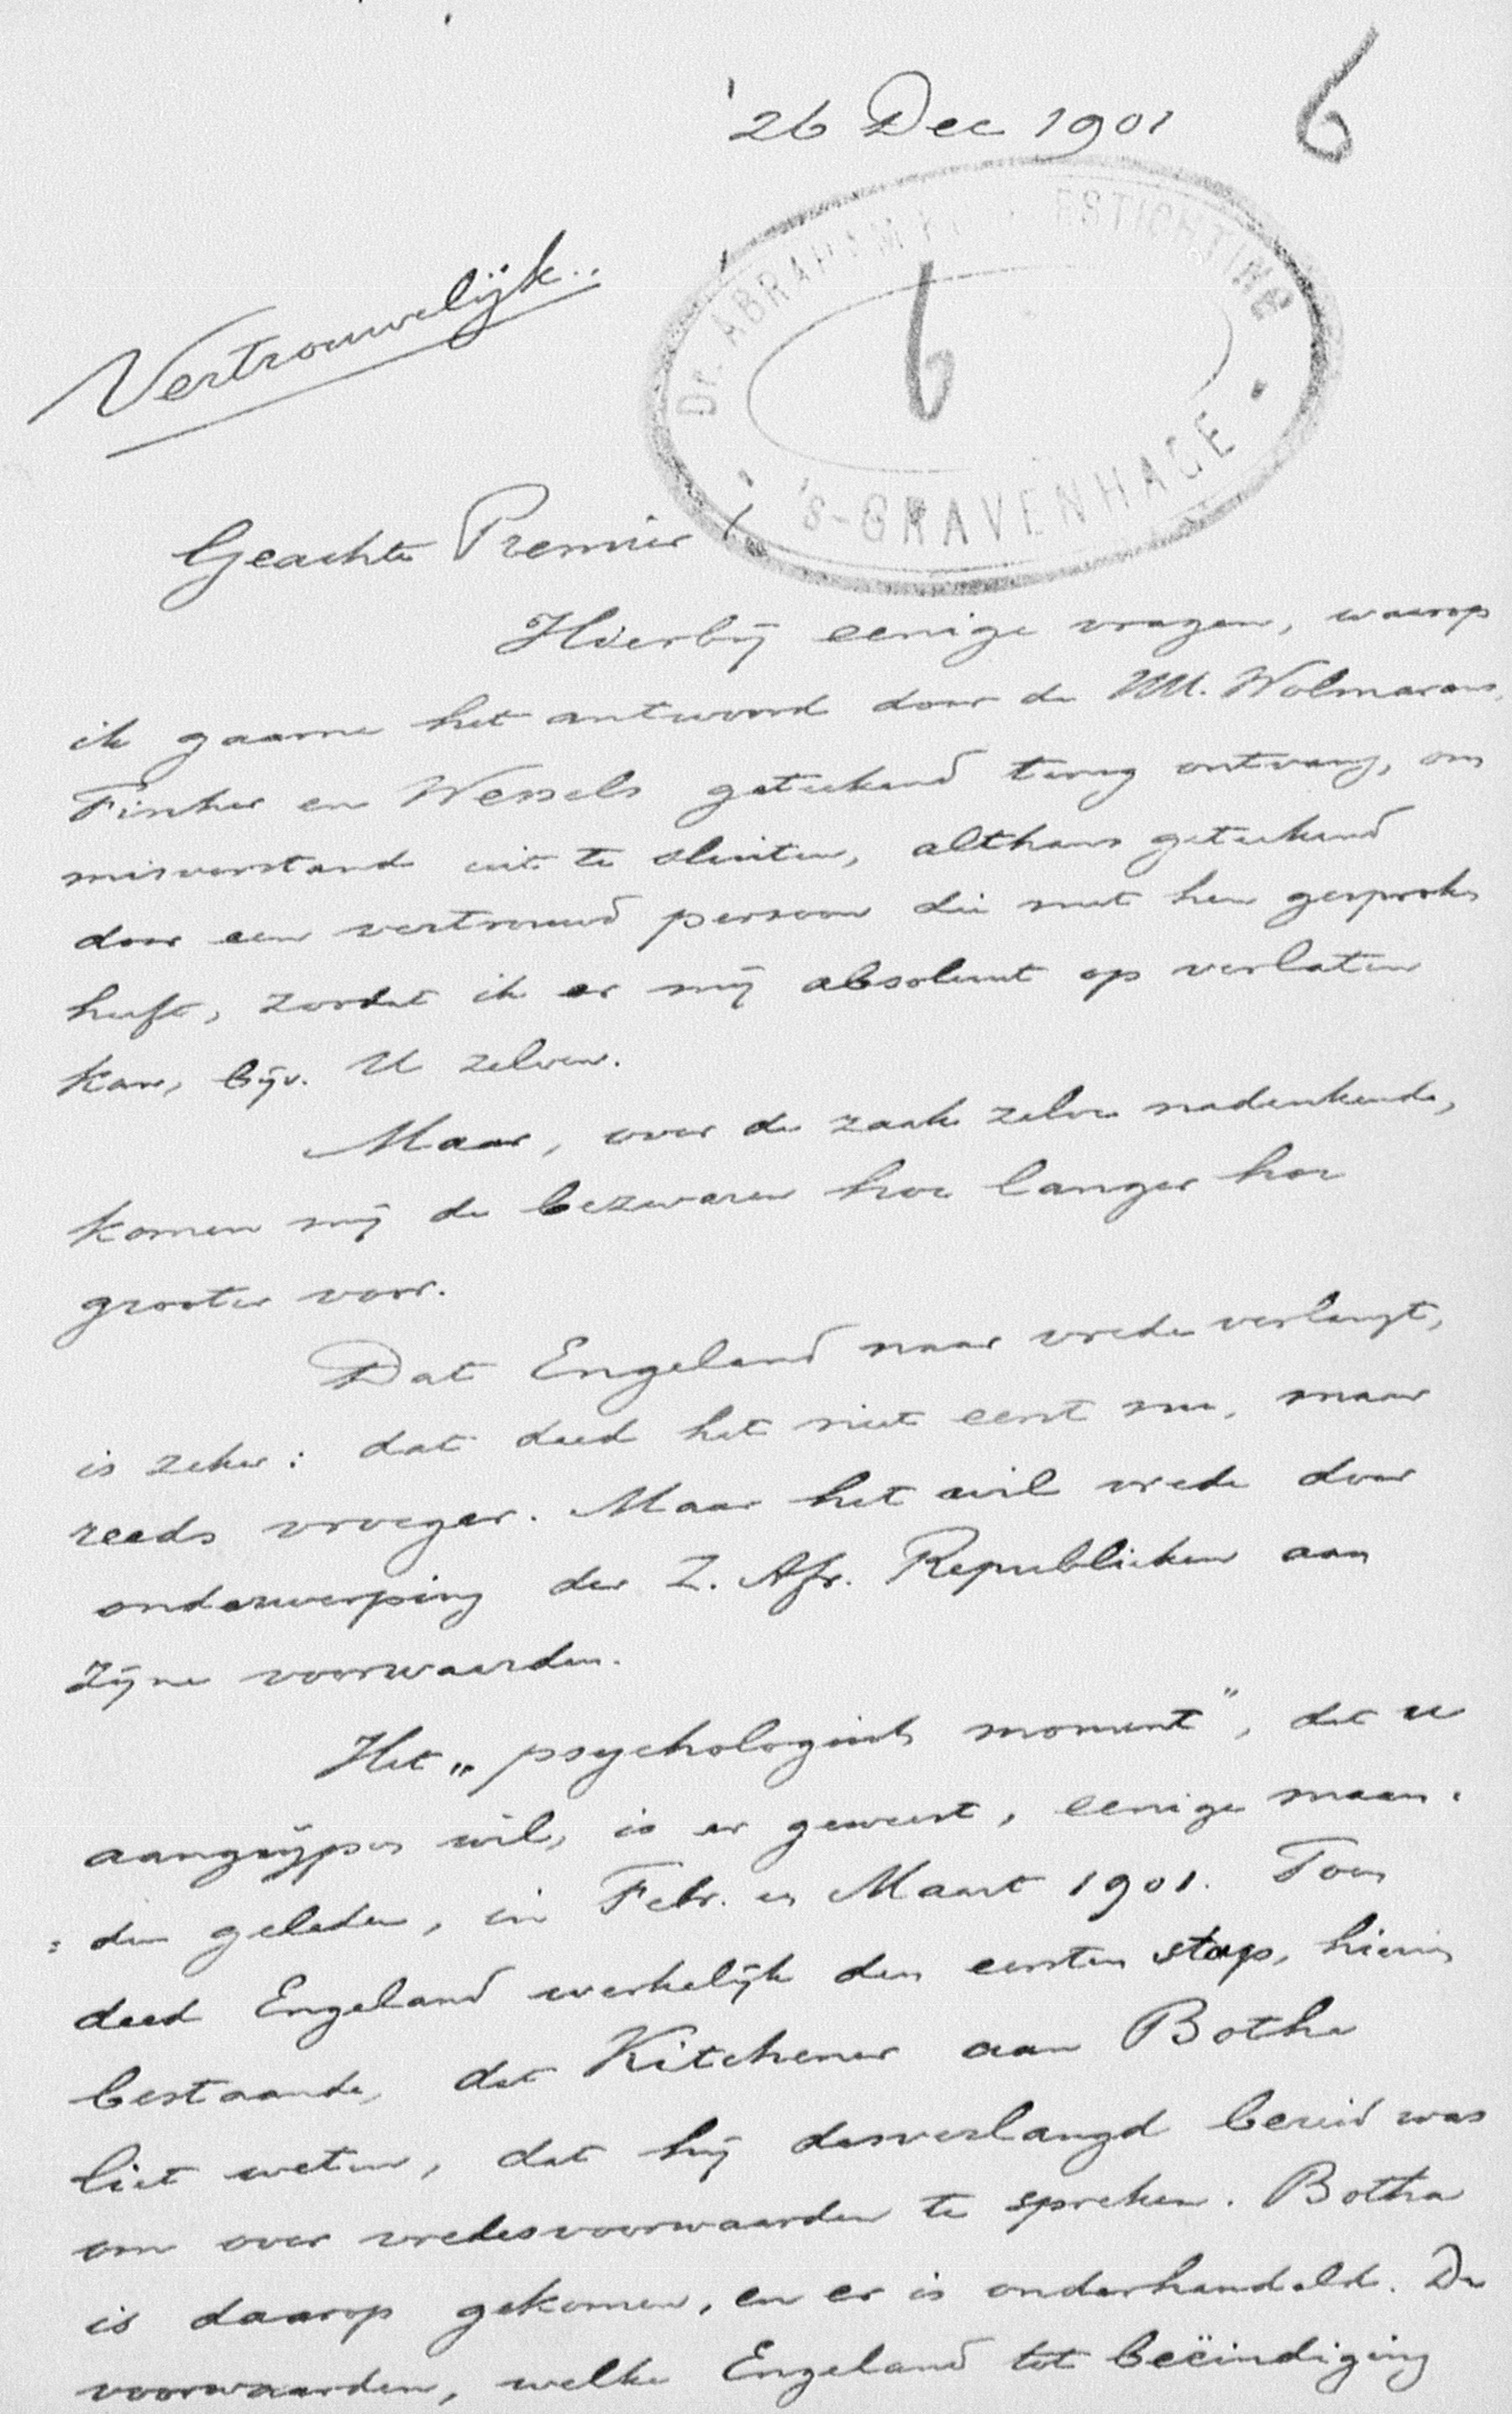 26 Dec 1901
6
Dr. ABRAHAM ESTICHTING
6
's-GRAVENHAGE
Vertrouwelijk..
Geachte Premier,
Hierbij eenige vragen, waarop
ik gaarne het antwoord door de HH. Wolmarans,
Fischer en Wessels geteekend terug ontvang, om
misverstand uit te sluiten, althans geteekend
door een vertrouwd persoon die met hen gesproken
heeft, zoodat ik er mij absoluut op verlaten
kan, bijv. U zelven.
Maar, over de zaak zelve nadenkende,
komen mij de bezwaren hoe langer hoe
grooter voor.
Dat Engeland naar vrede verlangt,
is zeker: dat deed het niet eerst nu, maar
reeds vroeger. Maar het wil vrede door
onderwerping der Z. Afr. Republieken aan
zijne voorwaarden.
Het „psychologisch moment", dat u
aangrijpen wil, is er geweest, eenige maan-
=den geleden, in Febr. en Maart 1901. Toen
deed Engeland werkelijk den eersten stap, hierin
bestaande, dat Kitchener aan Botha
liet weten, dat hij desverlangd bereid was
om over vredesvoorwaarden te spreken. Botha
is daarop gekomen, en er is onderhandeld. De
voorwaarden, welke Engeland tot beëindiging